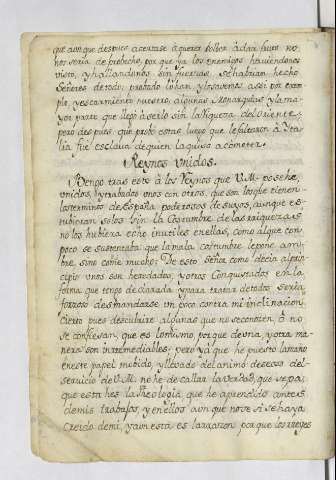 que aunque despues acertase a querer bolver à dar fruto no
nos seria de probecho, por que ya los enemigos haviendonos
visto, y hallandonos sin fuerzas, se habrian hecho
Señores de todo; probado lo han, y lo savemos assi por exem-
plo, y escarmiento nuestro algunas Monarquias y la ma-
yor parte que llegò à serlo sin la riqueza del Oriente;
pero despues que probò estas luego que le faltaron à Ita-
lia fue esclava de quien la quiso acometer.
Reynos Unidos.
Bengo tras esto à los Reynos que V.M. posehe,
unidos, y trabados unos con otros, que son los que tienen
los terminos de España poderosos de suyos, aunque es-
tubieran solos sin la Costumbre de las riquezas
no los hubiera echo inutiles en ellas, como al que con
poco se sustentaba que la mala costumbre le pone am-
bre, sino come mucho; De esto señor como decia al prin-
cipio unos son heredados, y otros Conquistados en la
forma que tengo declarada y para tratar de todos, seria
forzoso desmandarse un poco contra mi inclinacion
Cierto pues descubrire algunas que no se conocen, ò no
se confiesan, que es lo mismo, porque devria, y otra ma-
nera son irremediables; pero yà que he puesto la mano
en este papel mobido, y llevado del animo deseoso del
servicio de V.M. no he de callar la verdad, que se pa;
que esta hes la Theologia, que he aprendido antes
de mis trabajos, y en ellos aun que no se si se haya
Creido de mi, y aun està es la razon por que los Reyes